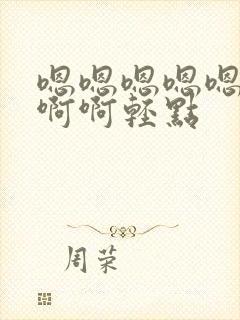 嗯嗯嗯嗯嗯
啊啊轻點
周荣